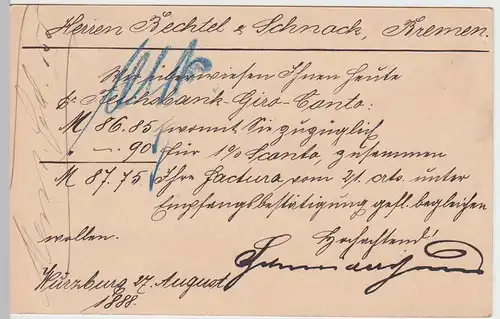 Herren Bechtel & Schnack, Bremen.
Wir überwiesen Ihnen heute
pr Reichsbank-Giro-Conto:
M 86.85 womit Sie zuzüglich
" -. 90 für 1% Sconto, zusammen
M 87.75 Ihre Factura vom 21. crts. unter
Empfangsbestätigung gefl. begleichen
wollen. Hochachtend!
Würzburg 27. August
1888.